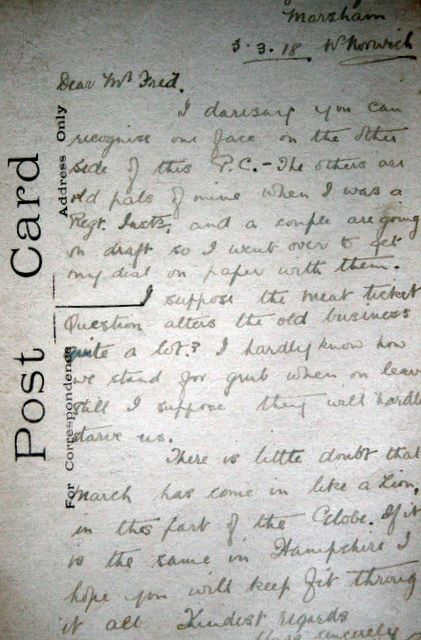 Marsham
3.3.18 Nr Norwich
Dear Mr Fred.
I daresay you can
recognise one face on the other
side of this P.C. - The others are
old pals of mine when I was a
Regt. Instr, and a couple are going
on draft so I went over to get
my dial on paper with them.
I suppose the meat ticket
Question alters the old business
quite a lot? I hardly know how
we stand for grub when on leav
still I suppose they will hardl
starve us.
There is little doubt that
March has come in like a Lion,
in this part of the Globe. If it
is the same in Hampshire I
hope you will keep fit throug
it all Kindest regards
sincerely
Post Card
For Correspondence
Address Only